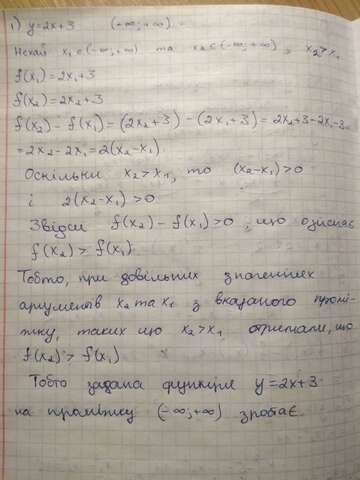 1) y=2x+3 (-∞;+∞).
Нехай x₁∈(-∞;+∞) та x₂∈(-∞;+∞), x₂>x₁
f(x₁)=2x₁+3
f(x₂)=2x₂+3
f(x₂)-f(x₁)=(2x₂+3)-(2x₁+3)=2x₂+3-2x₁-3=
=2x₂-2x₁=2(x₂-x₁)
Оскільки x₂>x₁, то (x₂-x₁)>0
і 2(x₂-x₁)>0
Звідси f(x₂)-f(x₁)>0, що означає
f(x₂)>f(x₁)
Тобто, при довільних значеннях
аргументів x₂ та x₁ з вказаного промі-
жку, таких що x₂>x₁ отримали, що
f(x₂)>f(x₁)
Тобто задана функція y=2x+3
на проміжку (-∞;+∞) зростає.